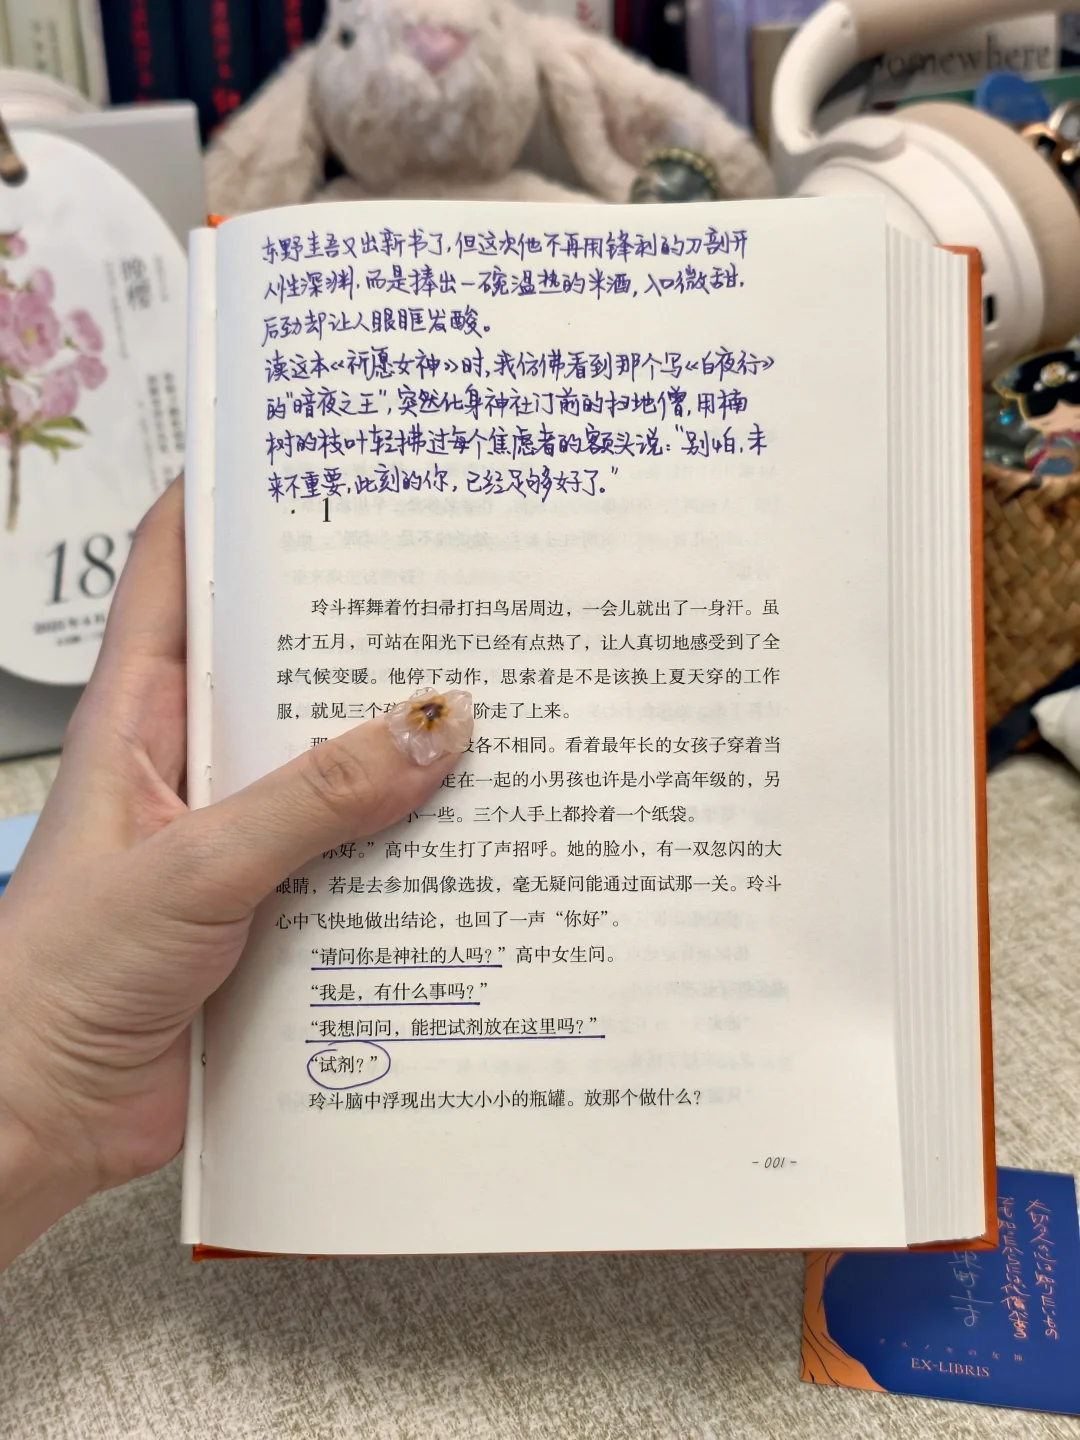 omewhere
晚樱
18
东野圭吾又出新书了,但这次他不再用锋利的刀剖开
人性深渊,而是捧出一碗温热的米酒,入口微甜,
后劲却让人眼眶发酸。
读这本《祈愿女神》时,我仿佛看到那个写《白夜行》
的"暗夜之王",突然化身神社门前的扫地僧,用楠
树的枝叶轻拂过每个焦虑者的额头说:"别怕,未
来不重要,此刻的你,已经足够好了。"
1
玲斗挥舞着竹扫帚打扫鸟居周边，一会儿就出了一身汗。虽
然才五月，可站在阳光下已经有点热了，让人真切地感受到了全
球气候变暖。他停下动作，思索着是不是该换上夏天穿的工作
服，就见三个 阶走了上来。
各不相同。看着最年长的女孩子穿着当
走在一起的小男孩也许是小学高年级的，另
小一些。三个人手上都拎着一个纸袋。
你好。”高中女生打了声招呼。她的脸小，有一双忽闪的大
眼睛，若是去参加偶像选拔，毫无疑问能通过面试那一关。玲斗
心中飞快地做出结论，也回了一声“你好”。
“请问你是神社的人吗？”高中女生问。
“我是，有什么事吗？”
“我想问问，能把试剂放在这里吗？”
“试剂？”
玲斗脑中浮现出大大小小的瓶罐。放那个做什么？
- 001 -
EX-LIBRIS